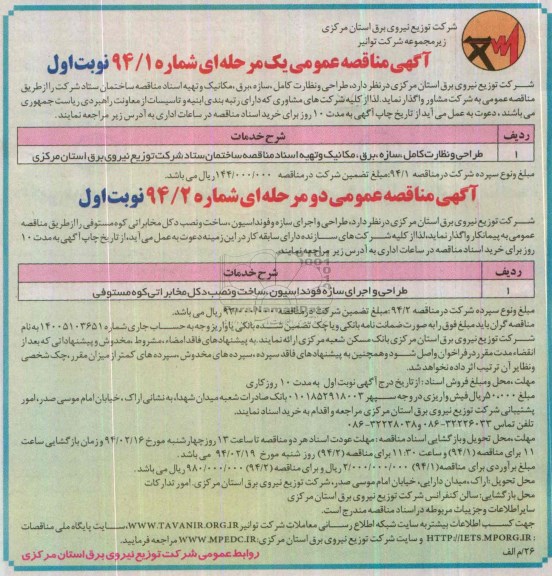 شرکت توزیع نیروی برق استان مرکزی
زیرمجموعه شرکت توانیر
آگهی مناقصه عمومی یک مرحله ای شماره ۹۴/۱ نوبت اول
شرکت توزیع نیروی برق استان مرکزی در نظر دارد، طراحی ونظارت کامل ،سازه ،برق ،مکانیک و تهیه اسناد مناقصه ساختمان ستاد شرکت را از طریق
مناقصه عمومی به شرکت مشاور واگذار نماید. لذا از کلیه شرکت های مشاوری که دارای رتبه بندی ابنیه و تاسیسات از معاونت راهبردی ریاست جمهوری
می باشند ، دعوت به عمل می آید از تاریخ چاپ آگهی به مدت ۱۰ روز برای خرید اسناد مناقصه در ساعات اداری به آدرس زیر مراجعه نمایند.
ردیف شرح خدمات
۱ طراحی و نظارت کامل ،سازه ،برق ، مکانیک وتهیه اسناد مناقصه ساختمان ستاد شرکت توزیع نیروی برق استان مرکزی
مبلغ ونوع سپرده شرکت در مناقصه ۹۴/۱:مبلغ تضمین شرکت در مناقصه ۱۴۴/۰۰۰/۰۰۰ ریال می باشد.
آگهی مناقصه عمومی دو مرحله ای شماره ۹۴/۲ نوبت اول
شرکت توزیع نیروی برق استان مرکزی در نظر دارد، طراحی و اجرای سازه و فونداسیون ،ساخت و نصب دکل مخابراتی کوه مستوفی را از طریق مناقصه
عمومی به پیمانکار واگذار نماید، لذا از کلیه شرکت های سازنده دارای سابقه کار در این زمینه دعوت به عمل می آید، از تاریخ چاپ آگهی به مدت ۱۰
روز برای خرید اسناد مناقصه در ساعات اداری به آدرس زیر مراجعه نمایند.
ردیف شرح خدمات
۱ طراحی و اجرای سازه فونداسیون ،ساخت و نصب دکل مخابراتی کوه مستوفی
مبلغ ونوع سپرده شرکت در مناقصه ۹۴/۲: مبلغ تضمین شرکت در مناقصه ریال می باشد.
مناقصه گران باید مبلغ فوق را به صورت ضمانت نامه بانکی و یا چک تضمین شده بانکی یا واریز وجه به حساب جاری شماره ۱۴۰۰۵۱۰۳۶۵۱ به نام
شرکت توزیع نیروی برق استان مرکزی بانک مسکن شعبه مرکزی ارائه نمایند. به پیشنهادهای فاقد امضاء ،مشروط ،مخدوش و پیشنهاداتی که بعد از
انقضاء مدت مقرر در فراخوان واصل شود و همچنین به پیشنهادهای فاقد سپرده ،سپرده های مخدوش ،سپرده های کمتر از میزان مقرر ،چک شخصی
ونظایر آن ترتیب اثر داده نخواهد شد.
مهلت، محل ومبلغ فروش اسناد : از تاریخ درج آگهی نوبت اول به مدت ۱۰ روز کاری
مبلغ ۵۰۰،۰۰۰ ریال فیش واریزی در وجه سپهر ۰۱۰۱۸۵۲۹۱۸۰۰۳ بانک صادرات شعبه میدان شهدا، به نشانی اراک ، خیابان امام موسی صدر، امور
پشتیبانی شرکت توزیع نیروی برق استان مرکزی مراجعه و اقدام به خرید اسناد نمایند.
تلفن تماس ۳۲۲۲۶۰۳۳-۰۸۶ و ۳۲۲۲۸۰۳۸-۰۸۶
مهلت ،محل تحویل وبازگشایی اسناد مناقصه : مهلت عودت اسناد هر دو مناقصه تا ساعت ۱۳ روز چهارشنبه مورخ ۹۴/۰۲/۱۶ و زمان بازگشایی ساعت
۱۱ برای مناقصه (۹۴/۱) و ساعت ۱۱:۳۰ برای مناقصه (۹۴/۲) روز شنبه مورخ ۹۴/۰۲/۱۹ می باشد .
مبلغ برآوردی برای مناقصه (۹۴/۱) ۲/۰۰۰/۰۰۰/۰۰۰ ریال و برای مناقصه (۹۴/۲) ۹۸۰/۰۰۰/۰۰۰ ریال می باشد .
محل تحویل : اراک ،میدان دارایی، خیابان امام موسی صدر، شرکت توزیع نیروی برق استان مرکزی، امور تدارکات
محل بازگشایی: سالن کنفرانس شرکت توزیع نیروی برق استان مرکزی
سایر اطلاعات و جزئیات مربوطه در اسناد مناقصه مندرج است.
جهت کسب اطلاعات بیشتر به سایت شبکه اطلاع رسانی معاملات شرکت توانیر WWW.TAVANIR.ORG.IR،سایت پایگاه ملی مناقصات
HTTP://IETS.MPORG.IR و سایت شرکت توزیع نیروی برق استان مرکزی WWW.MPEDC.IR مراجعه فرمایید.
۲۶/م الف روابط عمومی شرکت توزیع نیروی برق استان مرکزی